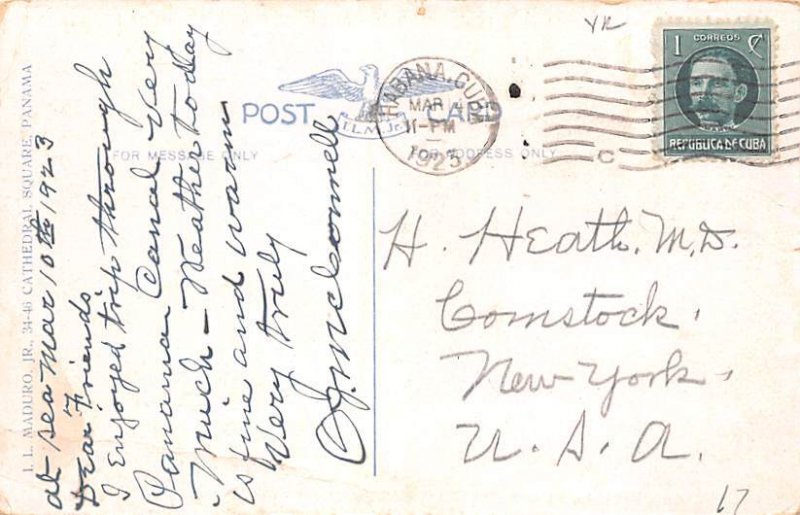 I. L. MADURO, JR., 34-46 CATHEDRAL SQUARE, PANAMA
POST CARD
I.L.M.Jr.
FOR MESSAGE ONLY
FOR ADDRESS ONLY
HABANA, CUBA
MAR
11-PM
1923
1 CORREOS ¢
REPUBLICA DE CUBA
at sea Mar 10th 1923
Dear Friends
I Enjoyed trip through
Panama Canal Very
Much - Weather today
is fine and warm
Very truly
McConnell
H. Heath. M.D.
Comstock.
New-York.
U. S. A.
17